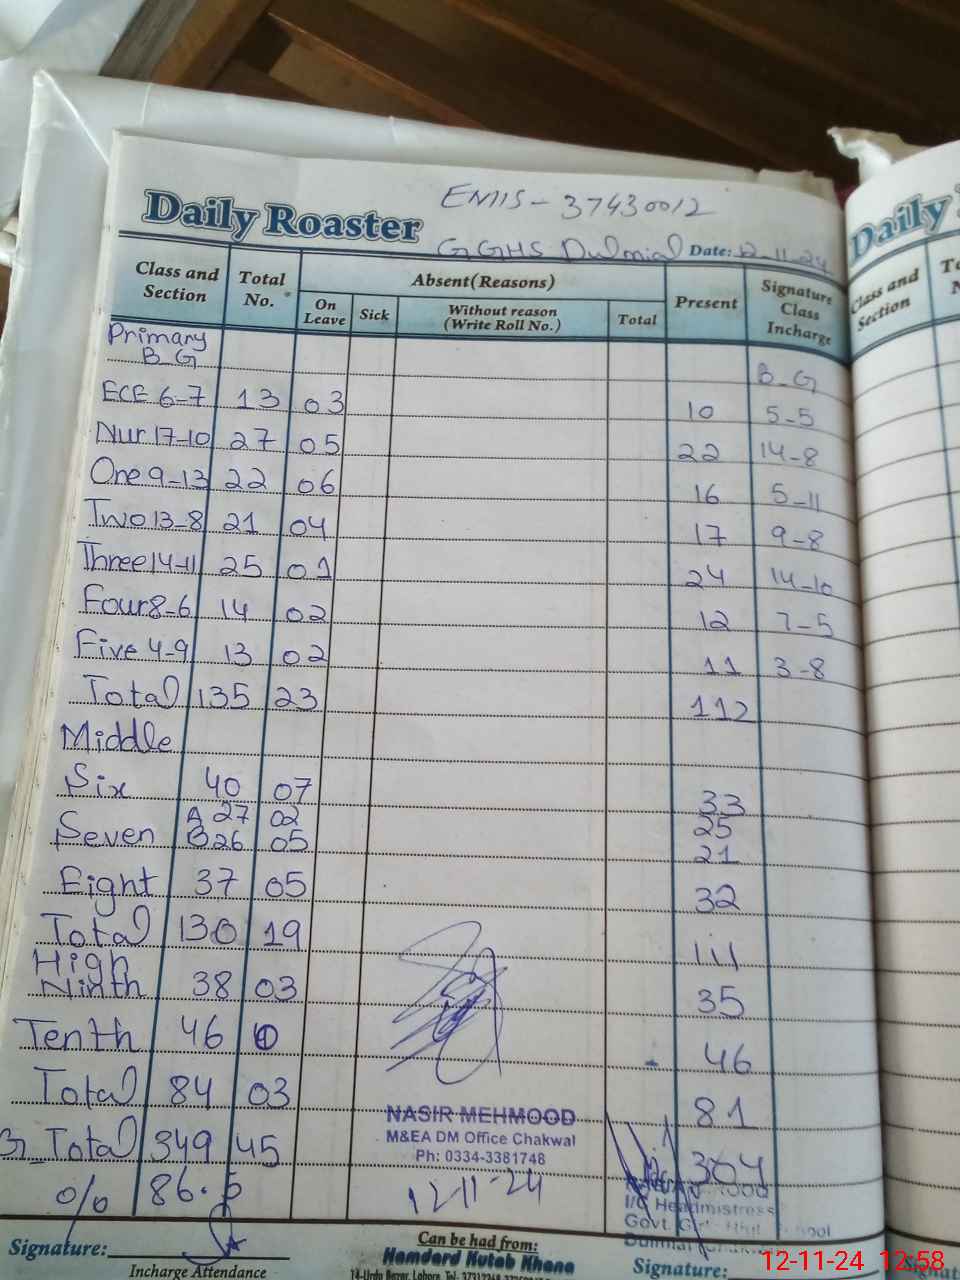 EMIS - 37430012
Daily Roaster
GGHS Dulmial Date: 12-11-24
Class and Section
Total No.
Absent(Reasons)
On Leave
Sick
Without reason (Write Roll No.)
Total
Present
Signature Class Incharge
Primary
B_G B_G
ECE 6-7 13 03 10 5-5
Nur 17-10 27 05 22 14-8
One 9-13 22 06 16 5-11
Two 13-8 21 04 17 9-8
Three 14-11 25 01 24 14-10
Four 8-6 14 02 12 7-5
Five 4-9 13 02 11 3-8
Total 135 23 112
Middle
Six 40 07 33
A 27 02 25
Seven B 26 05 21
Eight 37 05 32
Total 130 19 111
High
Ninth 38 03 35
Tenth 46 0 - 46
Total 84 03 81
G_Total 349 45 304
% 86.5
NASIR MEHMOOD
M&EA DM Office Chakwal
Ph: 0334-3381748
12-11-24
I/C Headmistress
Govt. Girls High School
Dulmial
Signature:
Incharge Attendance
Can be had from:
Hamdard Kutab Khana
14-Urdu Bazar, Lahore. Tel:
Signature:
Daily
Class and Section
12-11-24 12:58